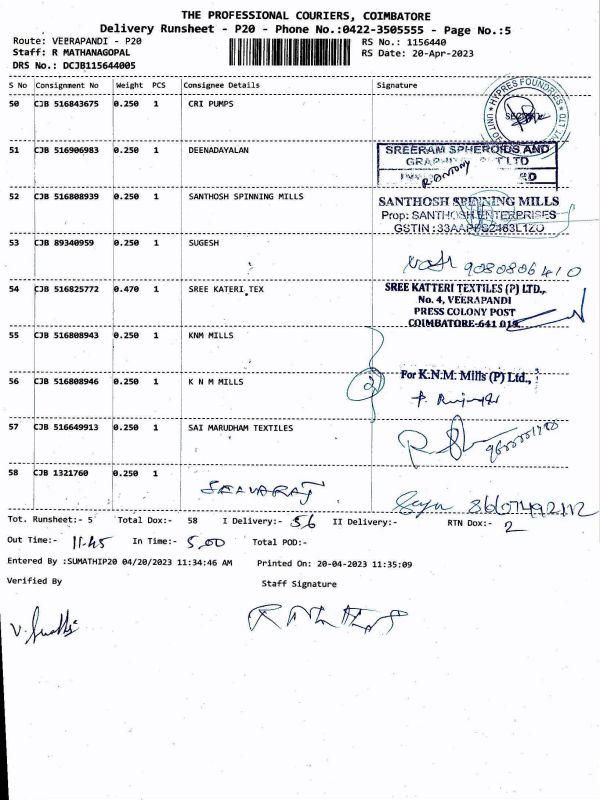 THE PROFESSIONAL COURIERS, COIMBATORE
Delivery Runsheet - P20 - Phone No.:0422-3505555 - Page No.:5
Route: VEERAPANDI - P20 RS No.: 1156440
Staff: R MATHANAGOPAL RS Date: 20-Apr-2023
DRS No.: DCJB115644005
S No Consignment No Weight PCS Consignee Details Signature
50 CJB 516843675 0.250 1 CRI PUMPS
HYPRES FOUNDRIES
51 CJB 516906983 0.250 1 DEENADAYALAN
SREERAM SPHEROIDS AND
52 CJB 516808939 0.250 1 SANTHOSH SPINNING MILLS
SANTHOSH SPINNING MILLS
Prop: SANTHOSH ENTERPRISES
53 CJB 89340959 0.250 1 SUGESH
9080806410
54 CJB 516825772 0.470 1 SREE KATERI TEX
SREE KATTERI TEXTILES (P) LTD.,
No. 4, VEERAPANDI
PRESS COLONY POST
COIMBATORE-641 019.
55 CJB 516808943 0.250 1 KNM MILLS
56 CJB 516808946 0.250 1 K N M MILLS
2 For K.N.M. Mills (P) Ltd.,
57 CJB 516649913 0.250 1 SAI MARUDHAM TEXTILES
58 CJB 1321760 0.250 1
SELVARAJ
Tot. Runsheet:- 5 Total Dox:- 58 I Delivery:- 56 II Delivery:- RTN Dox:- 2
Out Time:- 11.45 In Time:- 5.00 Total POD:-
Entered By :SUMATHIP20 04/20/2023 11:34:46 AM Printed On: 20-04-2023 11:35:09
Verified By Staff Signature